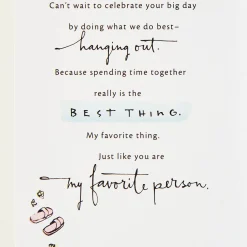 Can't wait to celebrate your big day
by doing what we do best–
hanging out.
Because spending time together
really is the
BEST THING.
My favorite thing.
Just like you are
my favorite person.